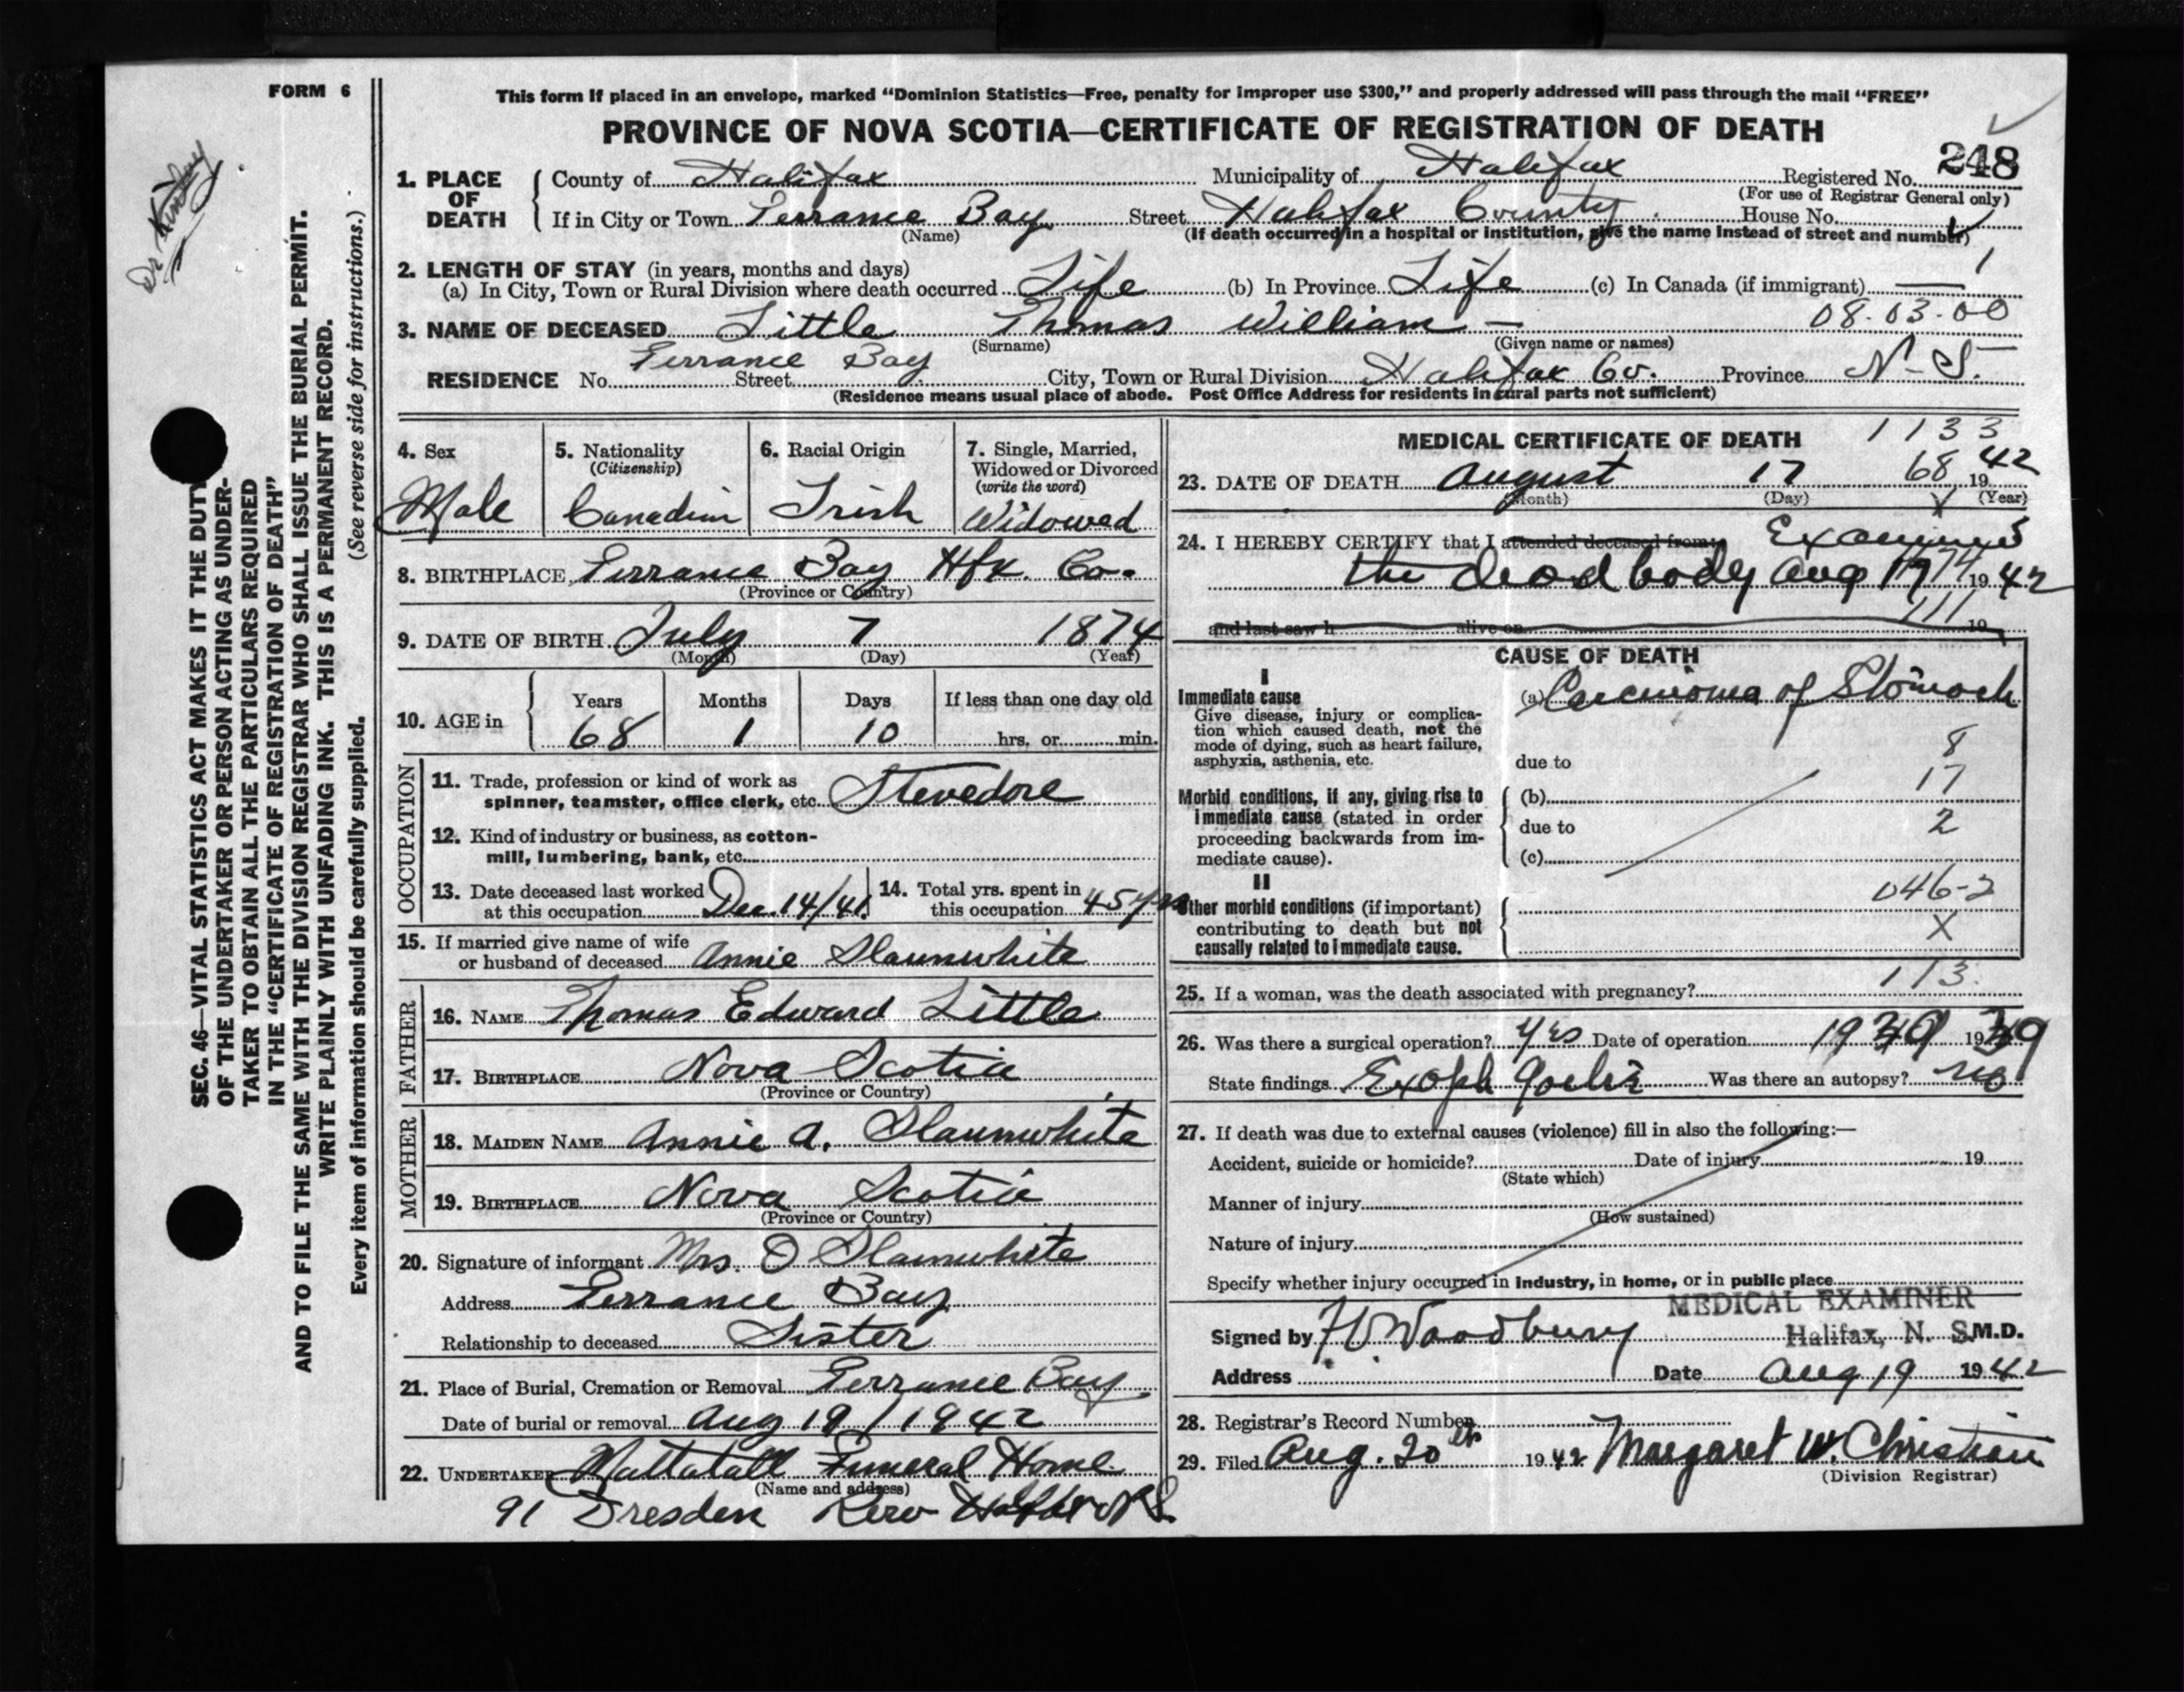 FORM 6
This form if placed in an envelope, marked “Dominion Statistics—Free, penalty for improper use $300,” and properly addressed will pass through the mail “FREE”
PROVINCE OF NOVA SCOTIA—CERTIFICATE OF REGISTRATION OF DEATH
248
1. PLACE OF DEATH
County of Halifax Municipality of Halifax Registered No.
(For use of Registrar General only)
If in City or Town Terrance Bay Street Halifax County. House No.
(Name) (If death occurred in a hospital or institution, give the name instead of street and number)
2. LENGTH OF STAY (in years, months and days)
(a) In City, Town or Rural Division where death occurred Life (b) In Province Life (c) In Canada (if immigrant) — 1
08.03.00
3. NAME OF DECEASED Little Thomas William —
(Surname) (Given name or names)
RESIDENCE No. Terrance Bay Street City, Town or Rural Division Halifax Co. Province N-S.
(Residence means usual place of abode. Post Office Address for residents in rural parts not sufficient)
4. Sex Male
5. Nationality (Citizenship) Canadian
6. Racial Origin Irish
7. Single, Married, Widowed or Divorced (write the word) Widowed
8. BIRTHPLACE Terrance Bay Hfx. Co.
(Province or Country)
9. DATE OF BIRTH July 7 1874
(Month) (Day) (Year)
10. AGE in Years Months Days If less than one day old
68 1 10 hrs. or min.
OCCUPATION
11. Trade, profession or kind of work as
spinner, teamster, office clerk, etc. Stevedore
12. Kind of industry or business, as cotton-
mill, lumbering, bank, etc.
13. Date deceased last worked at this occupation Dec. 14/41.
14. Total yrs. spent in this occupation 45 yrs
15. If married give name of wife
or husband of deceased Annie Slaunwhite
FATHER
16. NAME Thomas Edward Little
17. BIRTHPLACE Nova Scotia
(Province or Country)
MOTHER
18. MAIDEN NAME Annie A. Slaunwhite
19. BIRTHPLACE Nova Scotia
(Province or Country)
20. Signature of informant Mrs. O Slaunwhite
Address Terrance Bay
Relationship to deceased Sister
21. Place of Burial, Cremation or Removal Terrance Bay
Date of burial or removal Aug 19/1942
22. UNDERTAKER Mattatall Funeral Home
(Name and address)
91 Dresden Row
MEDICAL CERTIFICATE OF DEATH 1133
23. DATE OF DEATH August 17 68 1942
(Month) (Day) (Year)
24. I HEREBY CERTIFY that I attended deceased from: Examined
the dead body Aug 17 1942
and last saw h alive on 111 19
CAUSE OF DEATH
I
Immediate cause (a) Carcinoma of Stomach
Give disease, injury or complica-
tion which caused death, not the
mode of dying, such as heart failure,
asphyxia, asthenia, etc. due to 8
17
Morbid conditions, if any, giving rise to (b)
immediate cause (stated in order due to 2
proceeding backwards from im-
mediate cause). (c)
II
046-2
Other morbid conditions (if important)
contributing to death but not X
causally related to immediate cause.
113.
25. If a woman, was the death associated with pregnancy?
26. Was there a surgical operation? yes Date of operation 1939
State findings Was there an autopsy? no
27. If death was due to external causes (violence) fill in also the following:—
Accident, suicide or homicide? Date of injury 19
(State which)
Manner of injury
(How sustained)
Nature of injury
Specify whether injury occurred in industry, in home, or in public place
MEDICAL EXAMINER
Signed by Woodbury Halifax, N. S. M.D.
Address Date Aug 19 1942
28. Registrar's Record Number
29. Filed Aug. 20th 1942 Margaret W. Christian
(Division Registrar)
SEC. 46—VITAL STATISTICS ACT MAKES IT THE DUTY
OF THE UNDERTAKER OR PERSON ACTING AS UNDER-
TAKER TO OBTAIN ALL THE PARTICULARS REQUIRED
IN THE “CERTIFICATE OF REGISTRATION OF DEATH”
AND TO FILE THE SAME WITH THE DIVISION REGISTRAR WHO SHALL ISSUE THE BURIAL PERMIT.
WRITE PLAINLY WITH UNFADING INK. THIS IS A PERMANENT RECORD.
Every item of information should be carefully supplied. (See reverse side for instructions.)